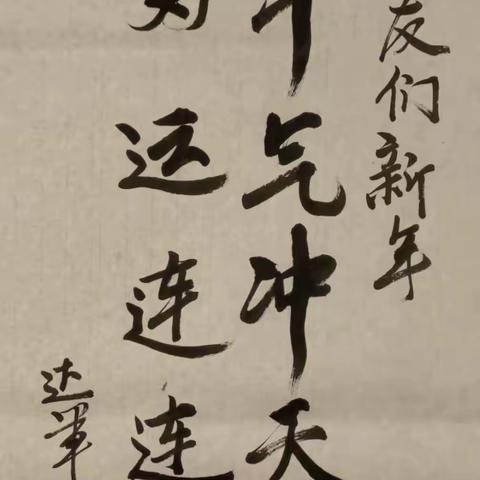 友们新年
牛气冲天
运连连
达